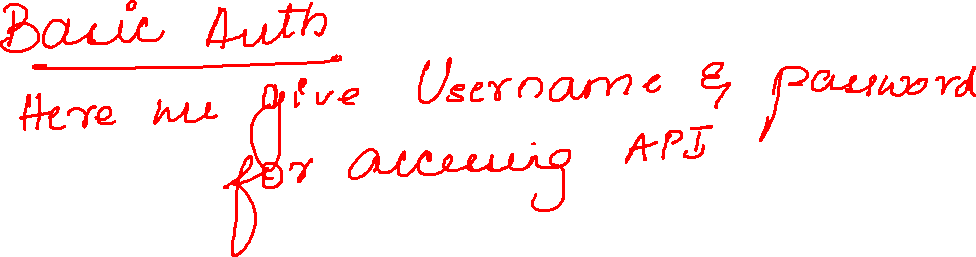 Basic Auth
Here we give Username & password
for accessing API